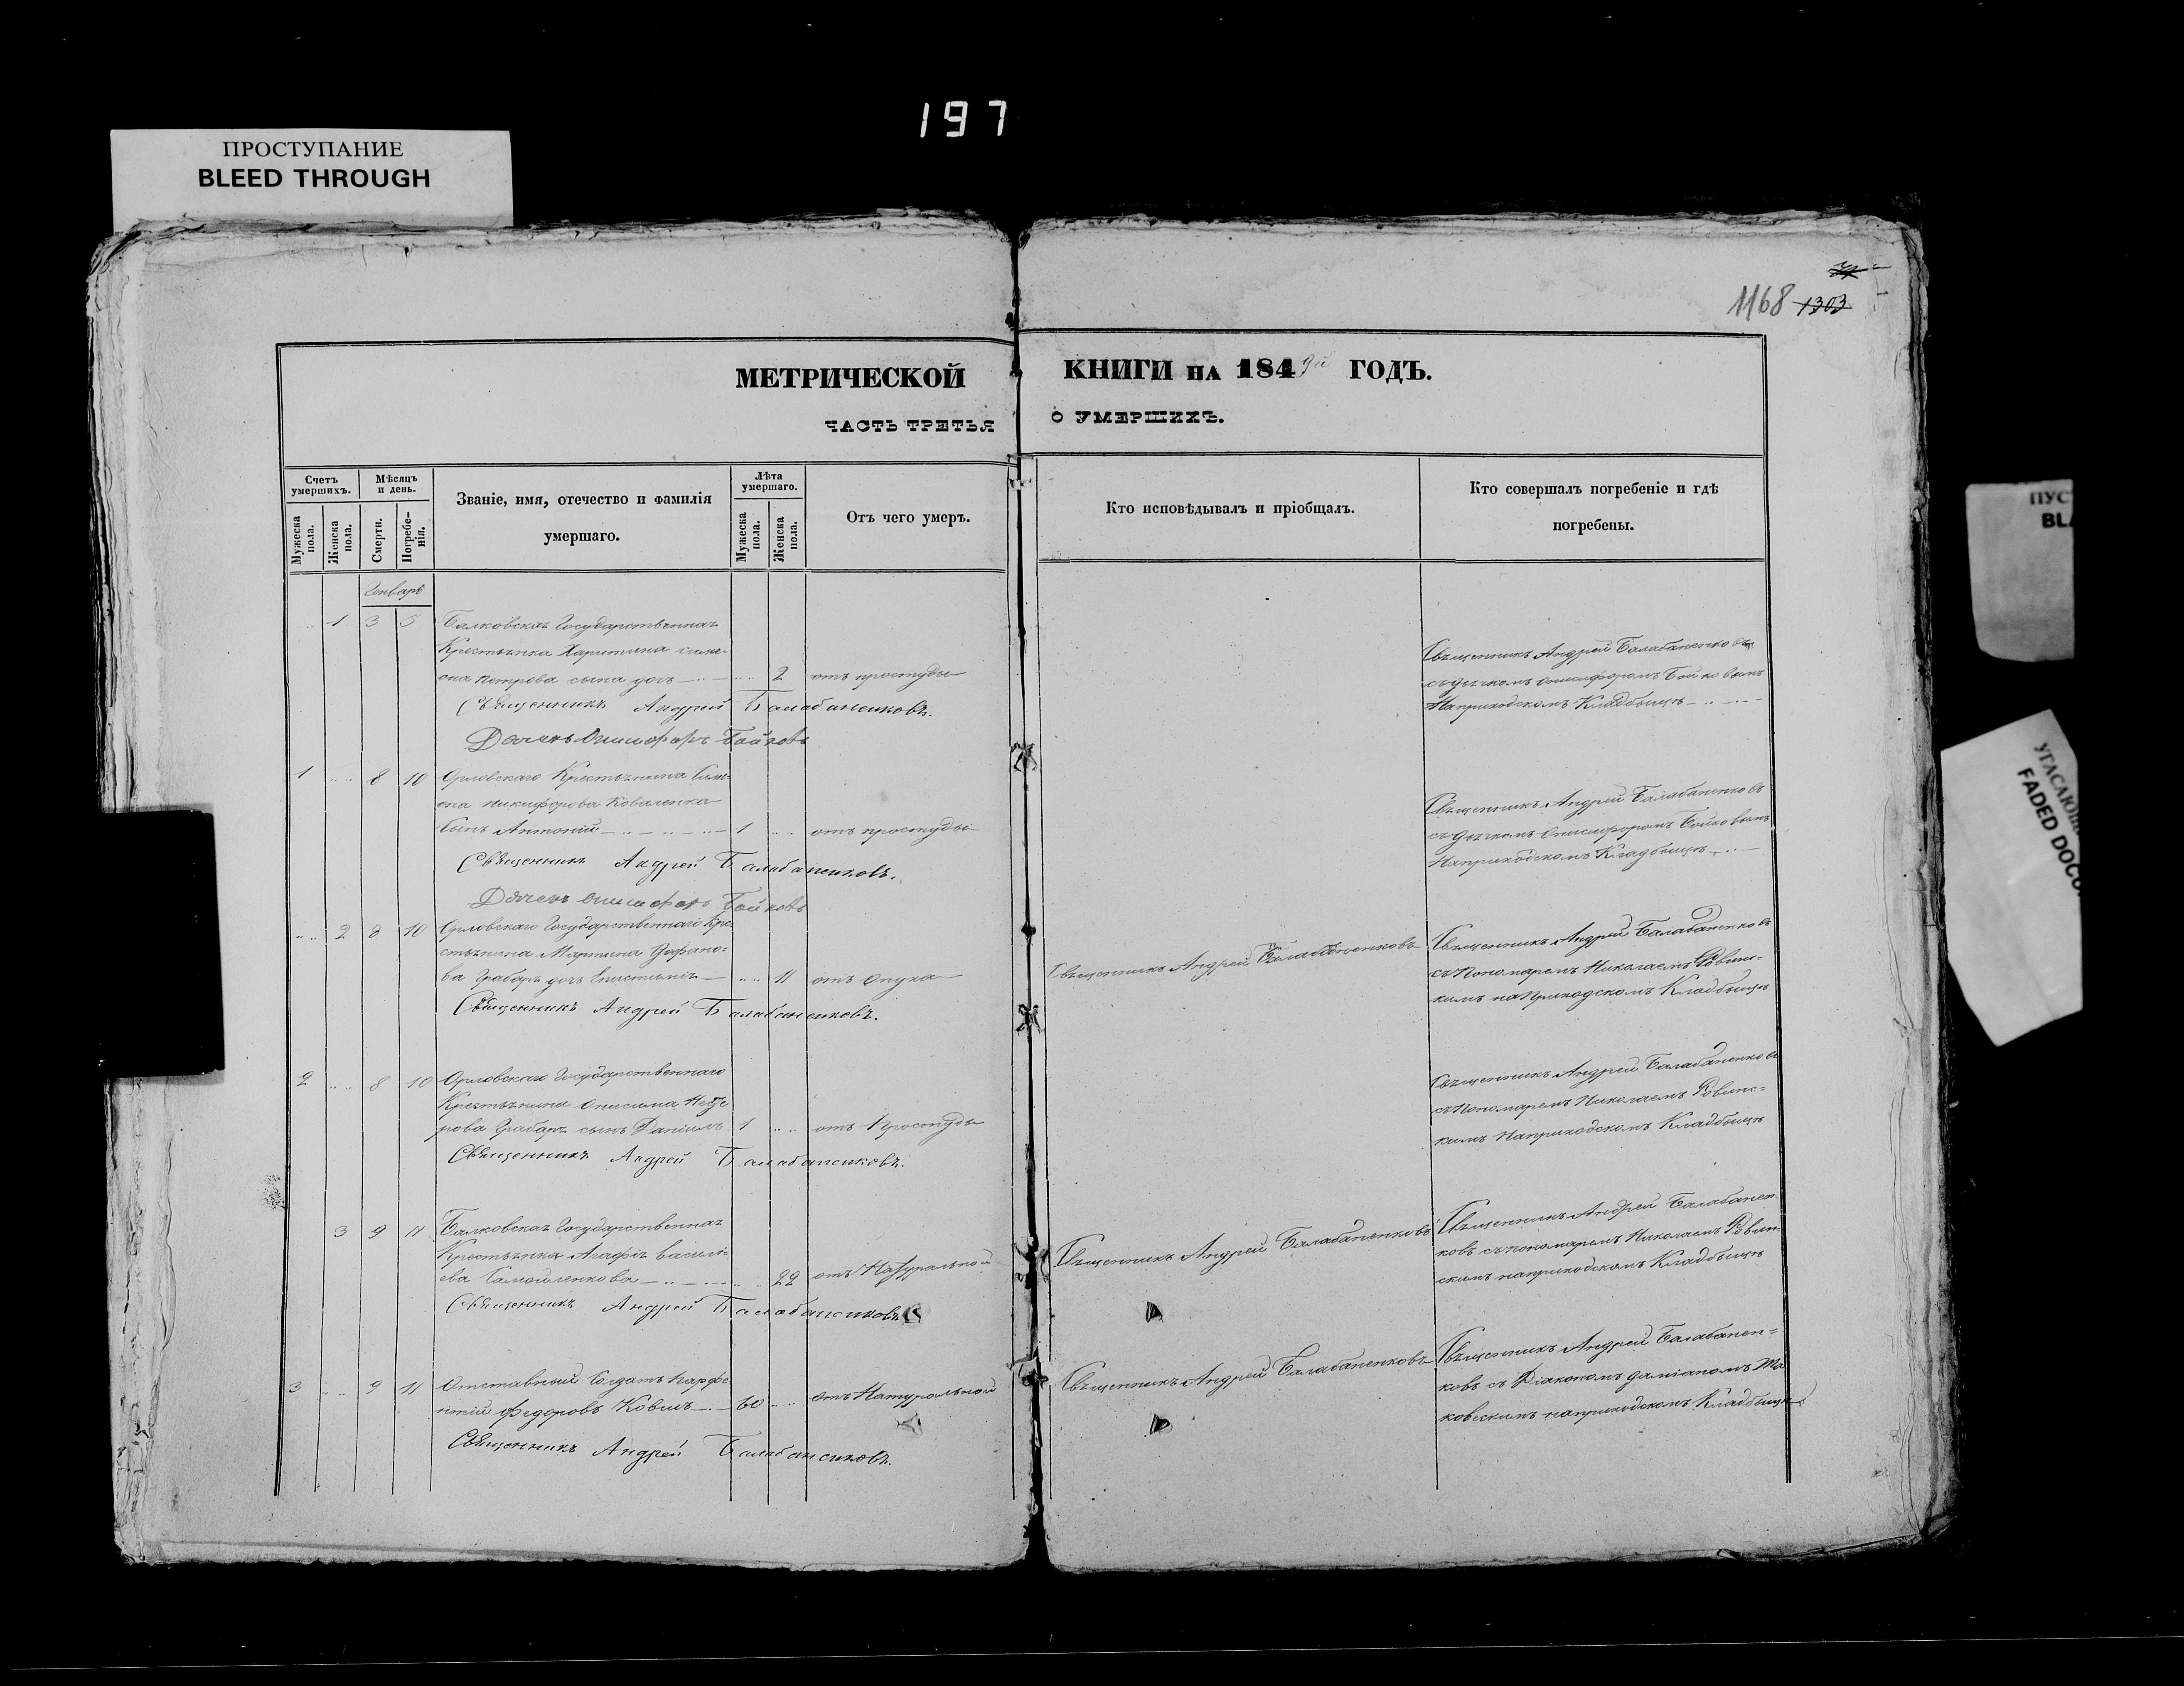 197
ПРОСТУПАНИЕ
BLEED THROUGH
1168 1303
МЕТРИЧЕСКОЙ КНИГИ НА 1849й ГОДЪ.
ЧАСТЬ ТРЕТЬЯ О УМЕРШИХЪ.
Счетъ умершихъ.
Мужеска пола.
Женска пола.
Мѣсяцъ и день.
Смерти.
Погребенія.
Званіе, имя, отечество и фамилія
умершаго.
Лѣта умершаго.
Мужеска пола.
Женска пола.
Отъ чего умеръ.
Кто исповѣдывалъ и пріобщалъ.
Кто совершалъ погребеніе и гдѣ
погребены.
Генварь
1 3 5 Балковская Государственная
Крестьянка Харитина Симе-
она Петрова сына дочь 2 отъ простуды
Священникъ Андрей Балабаненковъ.
Дячекъ Онисифоръ Бойковъ
Священникъ Андрей Балабаненковъ
съ дячкомъ Онисифоромъ Бойковымъ
На приходскомъ Кладбищѣ
1 8 10 Орловскаго Крестьянина Симе-
она Никифорова Коваленка
сынъ Антоній 1 отъ простуды
Священникъ Андрей Балабаненковъ.
Дячекъ Онисифоръ Бойковъ
Священникъ Андрей Балабаненковъ
съ дячкомъ Онисифоромъ Бойковымъ
На приходскомъ Кладбищѣ
2 8 10 Орловскаго Государственнаго Кре-
стьянина Мартина
ва Грабаря дочь Епистимія 11 отъ опуха
Священникъ Андрей Балабаненковъ.
Священникъ Андрей Балабаненковъ
Священникъ Андрей Балабаненковъ
съ Пономаремъ Николаемъ Ровин-
кимъ на Приходскомъ Кладбищѣ
2 8 10 Орловскаго Государственнаго
Крестьянина Онисима
рова Грабаря сынъ Даніилъ 1 отъ Простуды
Священникъ Андрей Балабаненковъ.
Священникъ Андрей Балабаненковъ
съ Пономаремъ Николаемъ Ровинс-
кимъ На приходскомъ Кладбищѣ
3 9 11 Балковская Государственная
Крестьянка Агафія Василь-
ева Самойленкова 22 отъ Натуральной
Священникъ Андрей Балабаненковъ
Священникъ Андрей Балабаненковъ
Священникъ Андрей Балабанен-
ковъ съ пономаремъ Николаемъ Ровин-
скимъ на приходскомъ Кладбищѣ
3 9 11 Отставный Солдатъ Парфе-
нтій Федоровъ Ковшъ 60 отъ Натуральной
Священникъ Андрей Балабаненковъ.
Священникъ Андрей Балабаненковъ
Священникъ Андрей Балабанен-
ковъ съ Діакономъ Даміаномъ Ма
ковскимъ на приходскомъ Кладбищѣ
ПУС
BL
УГАСАЮЩ
FADED DOCU